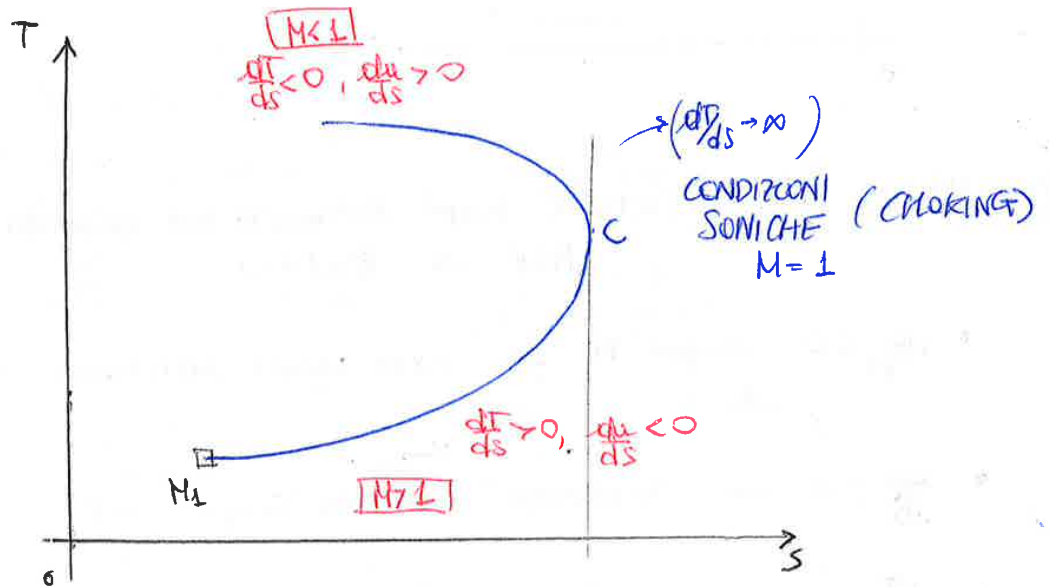 T
M<1
dT/ds<0, du/ds>0
(dT/ds→∞)
CONDIZIONI
SONICHE (CHOKING)
M=1
C
dT/ds>0, du/ds<0
M1
M>1
0
S